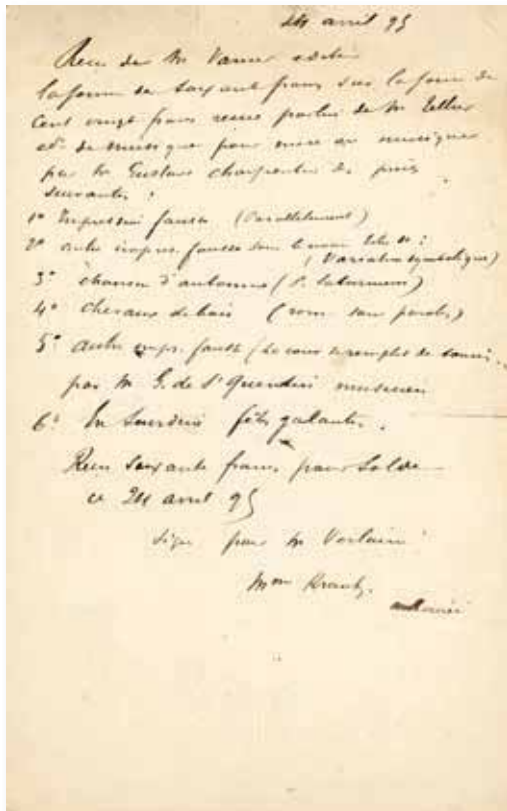 24 avril 95
Reçu de Mr Vanier editeur
la somme de soixante francs sur la somme de
cent vingt francs remise par lui de Mr Tellier
ed. de musique pour mise en musique
par Mr Gustave Charpentier des pièces
suivantes :
1° Impression fausse (Parallèlement)
2° autre impres. fausse sous le nom
(Variation symbolique)
3° chanson d'automne (P. Saturniens)
4° chevaux de bois (rom sans paroles)
5° autre impr. fausse (La cour se remplit de
par Mr G. de St Quentin musicien
6° En Sourdine fêtes galantes.
Reçu soixante francs pour solde
ce 24 avril 95
signé pour Mr Verlaine
Mme Krantz.